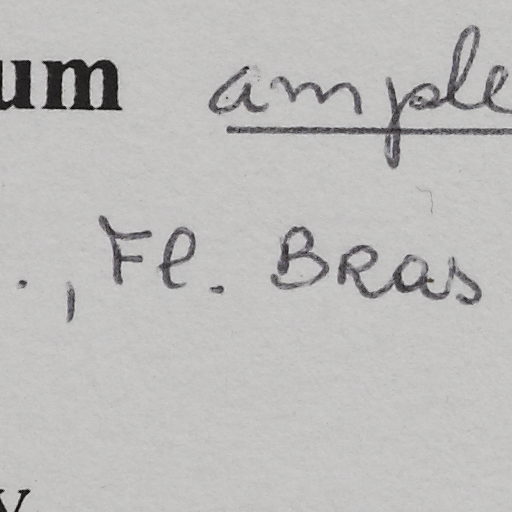 um ample
., Fl. Bras
y